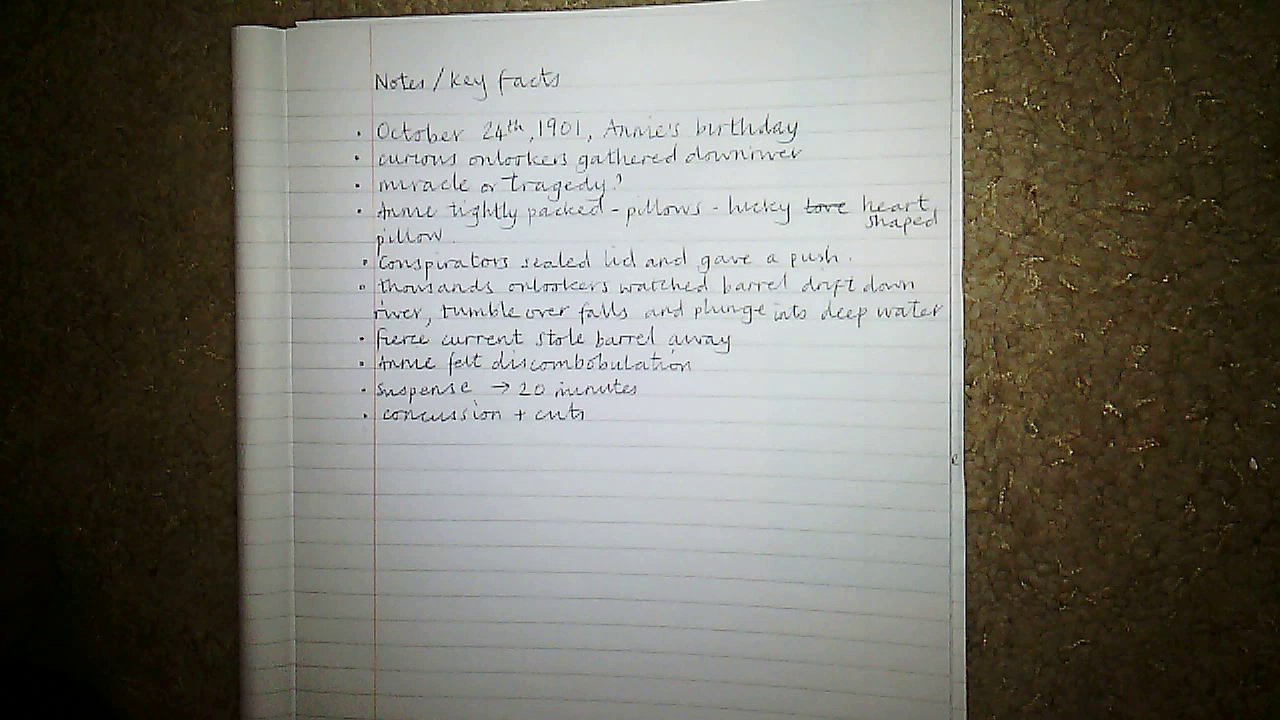 Notes/key facts
• October 24th, 1901, Annie's birthday
• curious onlookers gathered downriver
• miracle or tragedy?
• Annie tightly packed - pillows - lucky love heart
shaped
pillow.
• Conspirators sealed lid and gave a push.
• thousands onlookers watched barrel drift down
river, tumble over falls and plunge into deep water
• fierce current stole barrel away
• Annie felt discombobulation
• Suspense → 20 minutes
• concussion + cuts